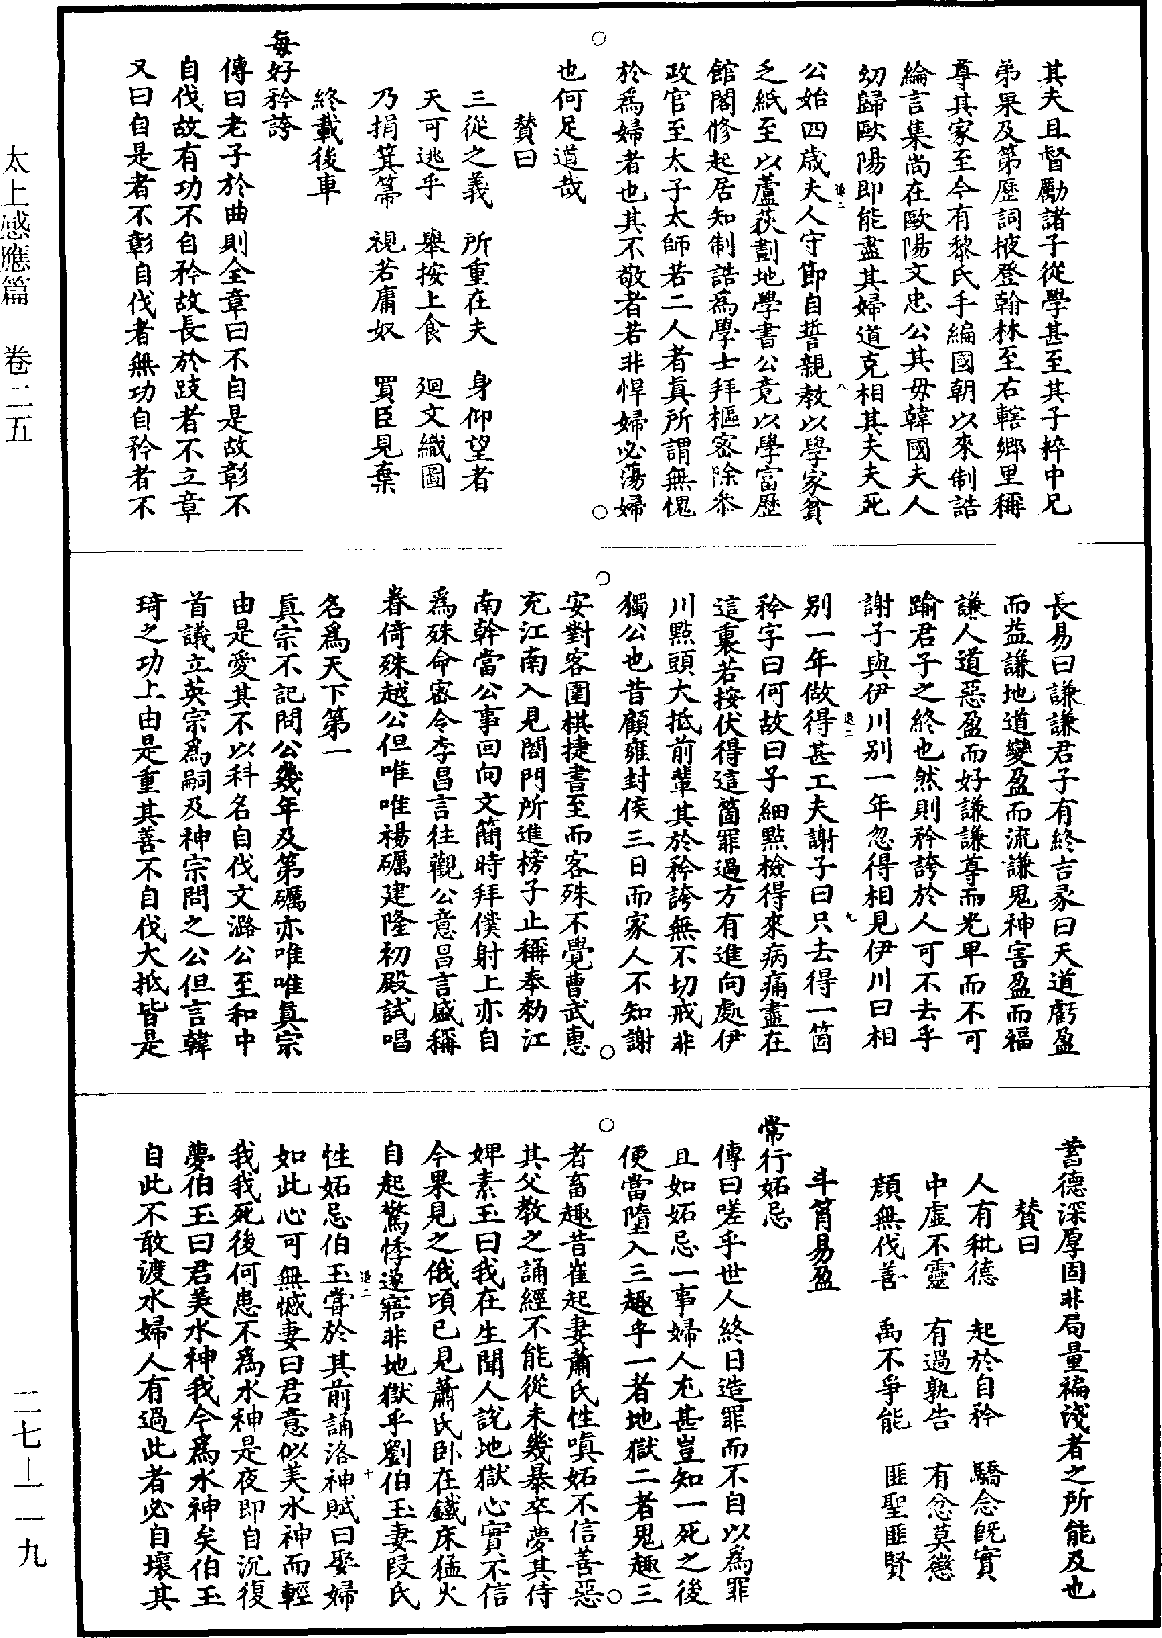 其夫且督勵諸子從學甚至其子粹中兄
弟果及第歷詞掖登翰林至右轄鄉里稱
尊其家至今有黎氏手編國朝以來制誥
綸言集尚在歐陽文忠公其母韓國夫人
幼歸歐陽即能盡其婦道克相其夫夫死
公始四歲夫人守節自誓親教以學家貧
乏紙至以蘆荻劃地學書公竟以學富歷
館閣修起居知制誥為學士拜樞密除參
政官至太子太師若二人者真所謂無愧
於為婦者也其不敬者若非悍婦必蕩婦
也何足道哉
贊曰
三從之義　所重在夫　身仰望者
天可逃乎　舉按上食　廻文織圖
乃捐箕箒　視若庸奴　買臣見棄
終載後車
每好矜誇
傳曰老子於曲則全章曰不自是故彰不
自伐故有功不自矜故長於跂者不立章
又曰自是者不彰自伐者無功自矜者不
長易曰謙謙君子有終吉彖曰天道虧盈
而益謙地道變盈而流謙鬼神害盈而福
謙人道惡盈而好謙謙尊而光卑而不可
踰君子之終也然則矜誇於人可不去乎
謝子與伊川別一年忽得相見伊川曰相
別一年做得甚工夫謝子曰只去得一箇
矜字曰何故曰子細點檢得來病痛盡在
這裏若按伏得這箇罪過方有進向處伊
川點頭大抵前輩其於矜誇無不切戒非
獨公也昔顧雍封侯三日而家人不知謝
安對客圍棋捷書至而客殊不覺曹武惠
充江南入見閤門所進榜子止稱奉勑江
南幹當公事回向文簡時拜僕射上亦自
為殊命密令李昌言往觀公意昌言盛稱
眷倚殊越公但唯唯楊礪建隆初殿試唱
名為天下第一
真宗不記問公幾年及第礪亦唯唯真宗
由是愛其不以科名自伐文潞公至和中
首議立英宗為嗣及神宗問之公但言韓
琦之功上由是重其善不自伐大抵皆是
蓄德深厚固非局量褊淺者之所能及也
贊曰
人有秕德　起於自矜　驕念既實
中虛不靈　有過孰告　有忿莫懲
顏無伐善　禹不爭能　匪聖匪賢
斗筲易盈
常行妬忌
傳曰嗟乎世人終日造罪而不自以為罪
且如妬忌一事婦人尤甚豈知一死之後
便當墮入三趣乎一者地獄二者鬼趣三
者畜趣昔崔起妻蕭氏性嗔妬不信善惡
其父教之誦經不能從未幾暴卒夢其侍
婢素玉曰我在生聞人說地獄心實不信
今果見之俄頃已見蕭氏臥在鐵床猛火
自起驚悸遂寤非地獄乎劉伯玉妻段氏
性妬忌伯玉嘗於其前誦洛神賦曰娶婦
如此心可無憾妻曰君意似美水神而輕
我我死後何患不為水神是夜即自沉復
夢伯玉曰君美水神我今為水神矣伯玉
自此不敢渡水婦人有過此者必自壞其
太上感應篇　卷二五
二七—一一九